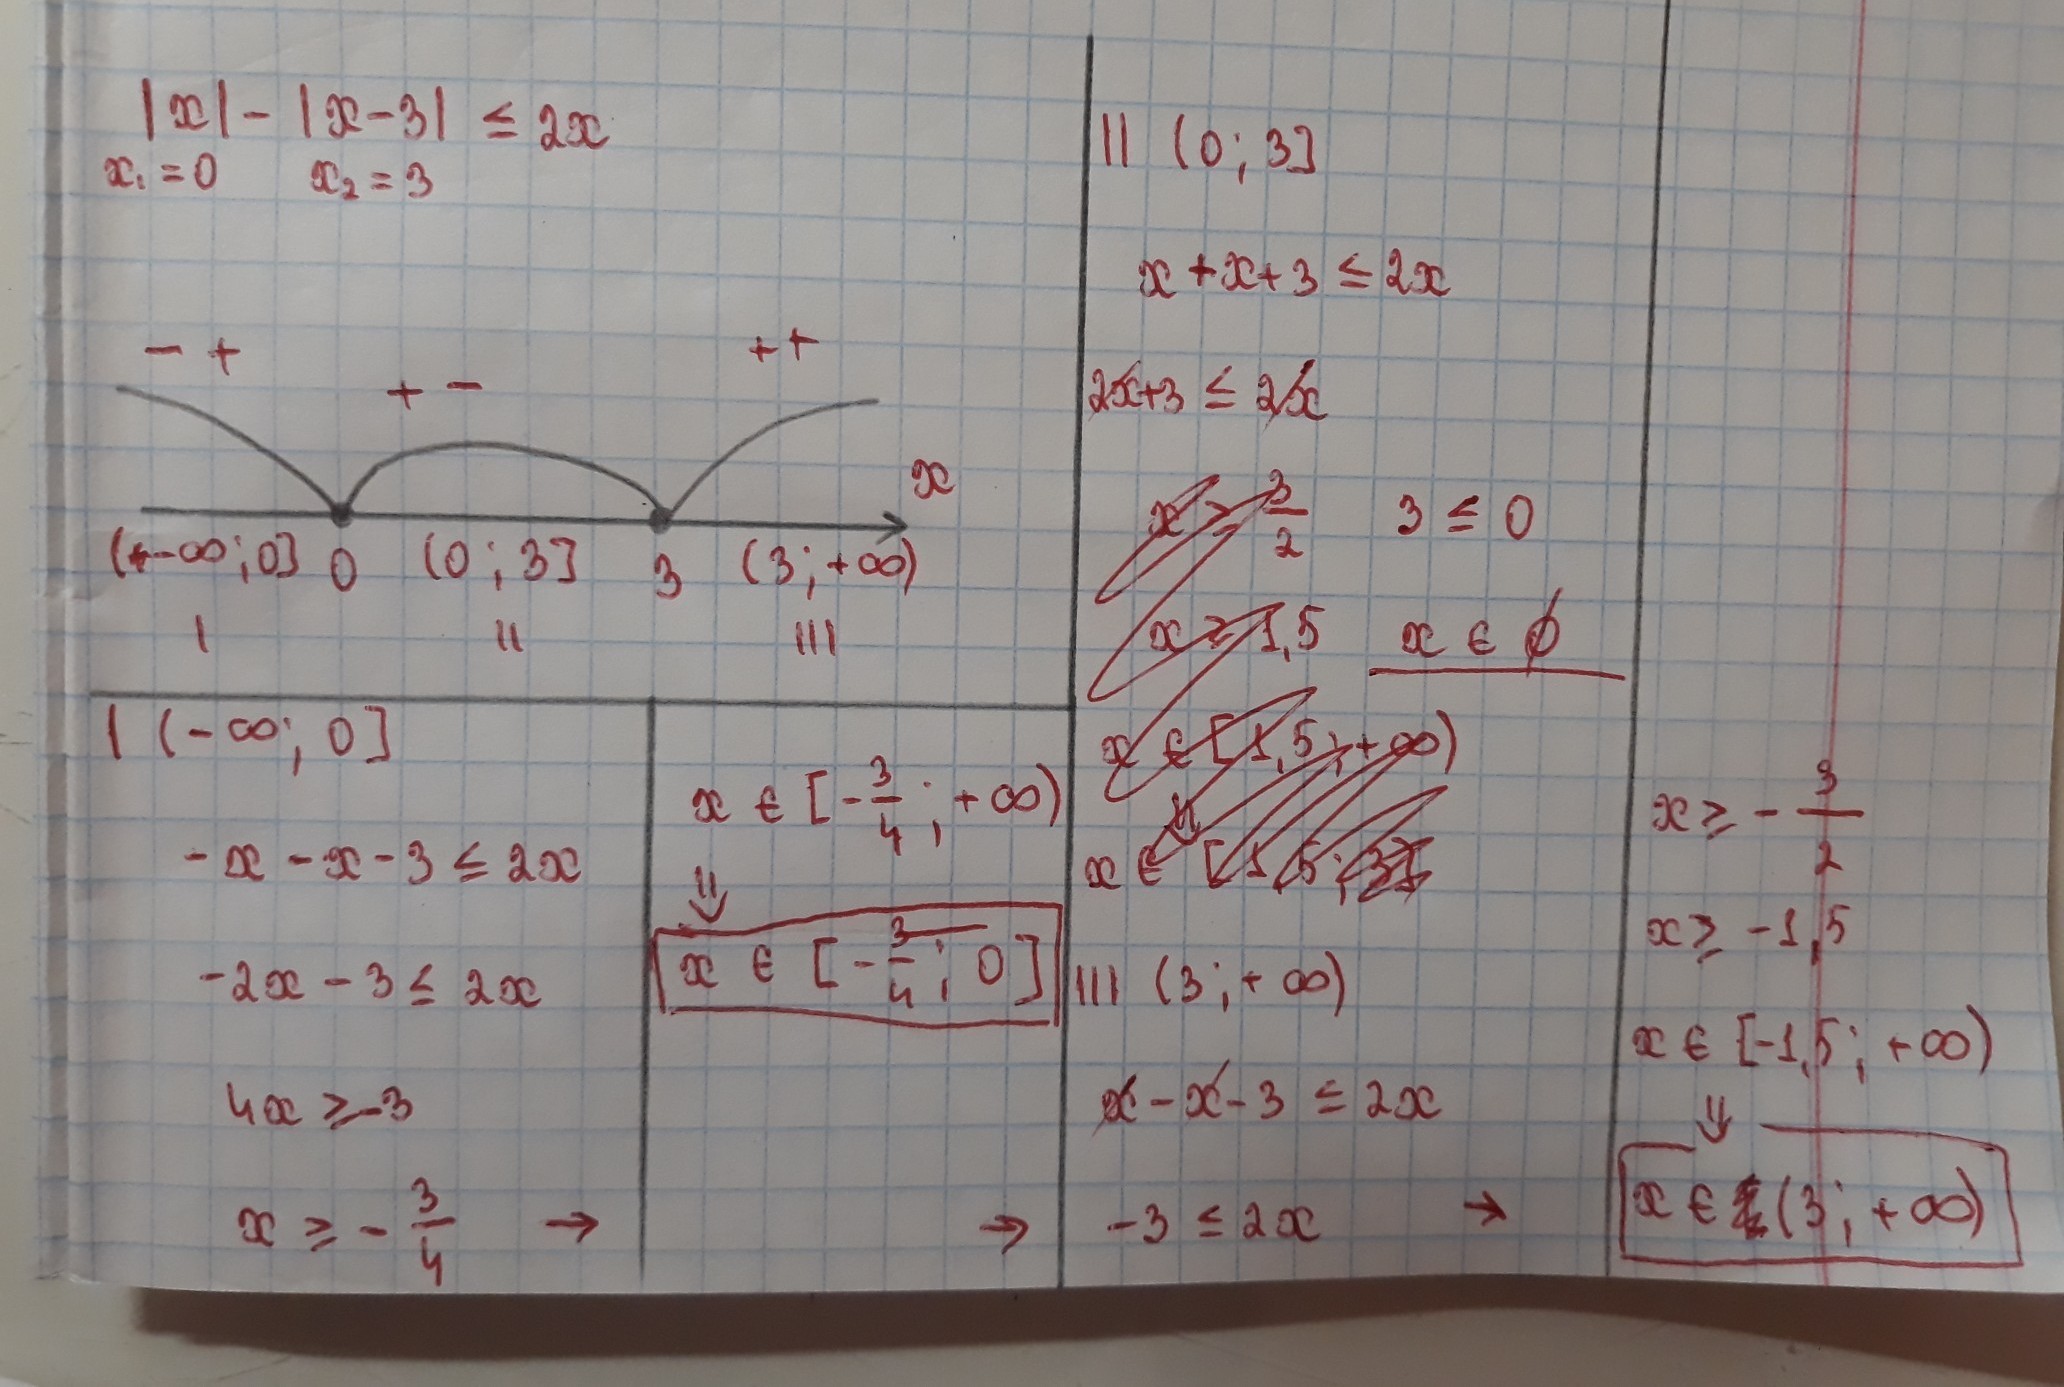 |x| - |x-3| ≤ 2x
x₁ = 0 x₂ = 3
- + + - + +
x
(-∞; 0] 0 (0; 3] 3 (3; +∞)
I II III
I (-∞; 0]
-x - x - 3 ≤ 2x
-2x - 3 ≤ 2x
4x ≥ -3
x ≥ - 3/4 →
x ∈ [- 3/4; +∞)
⇓
x ∈ [- 3/4; 0]
→
II (0; 3]
x + x + 3 ≤ 2x
2x + 3 ≤ 2x
x ≥ 3/2
x ≥ 1,5
x ∈ [1,5; +∞)
⇓
x ∈ [1,5; 3]
3 ≤ 0
x ∈ ∅
III (3; +∞)
x - x - 3 ≤ 2x
-3 ≤ 2x →
x ≥ - 3/2
x ≥ -1,5
x ∈ [-1,5; +∞)
⇓
x ∈ (3; +∞)